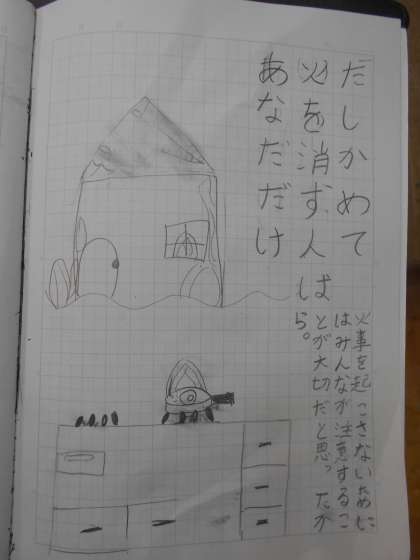 だしかめて
火を消す人は
あなただけ
火事を起こさないために
はみんなが注意するこ
とが大切だと思ったか
ら。